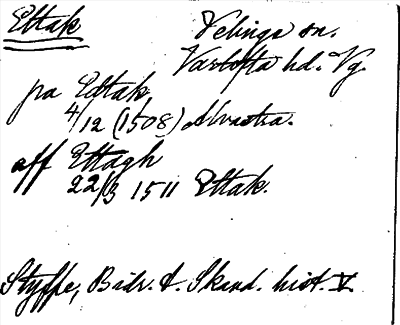 Ettak
Velinga sn.
Vartofta hd. Vg.
pa Edtak
4/12 (1508) Alvastra.
aff Ettagh
22/3 1511 Ettak.
Styffe, Bidr. t. Skand. hist. V.